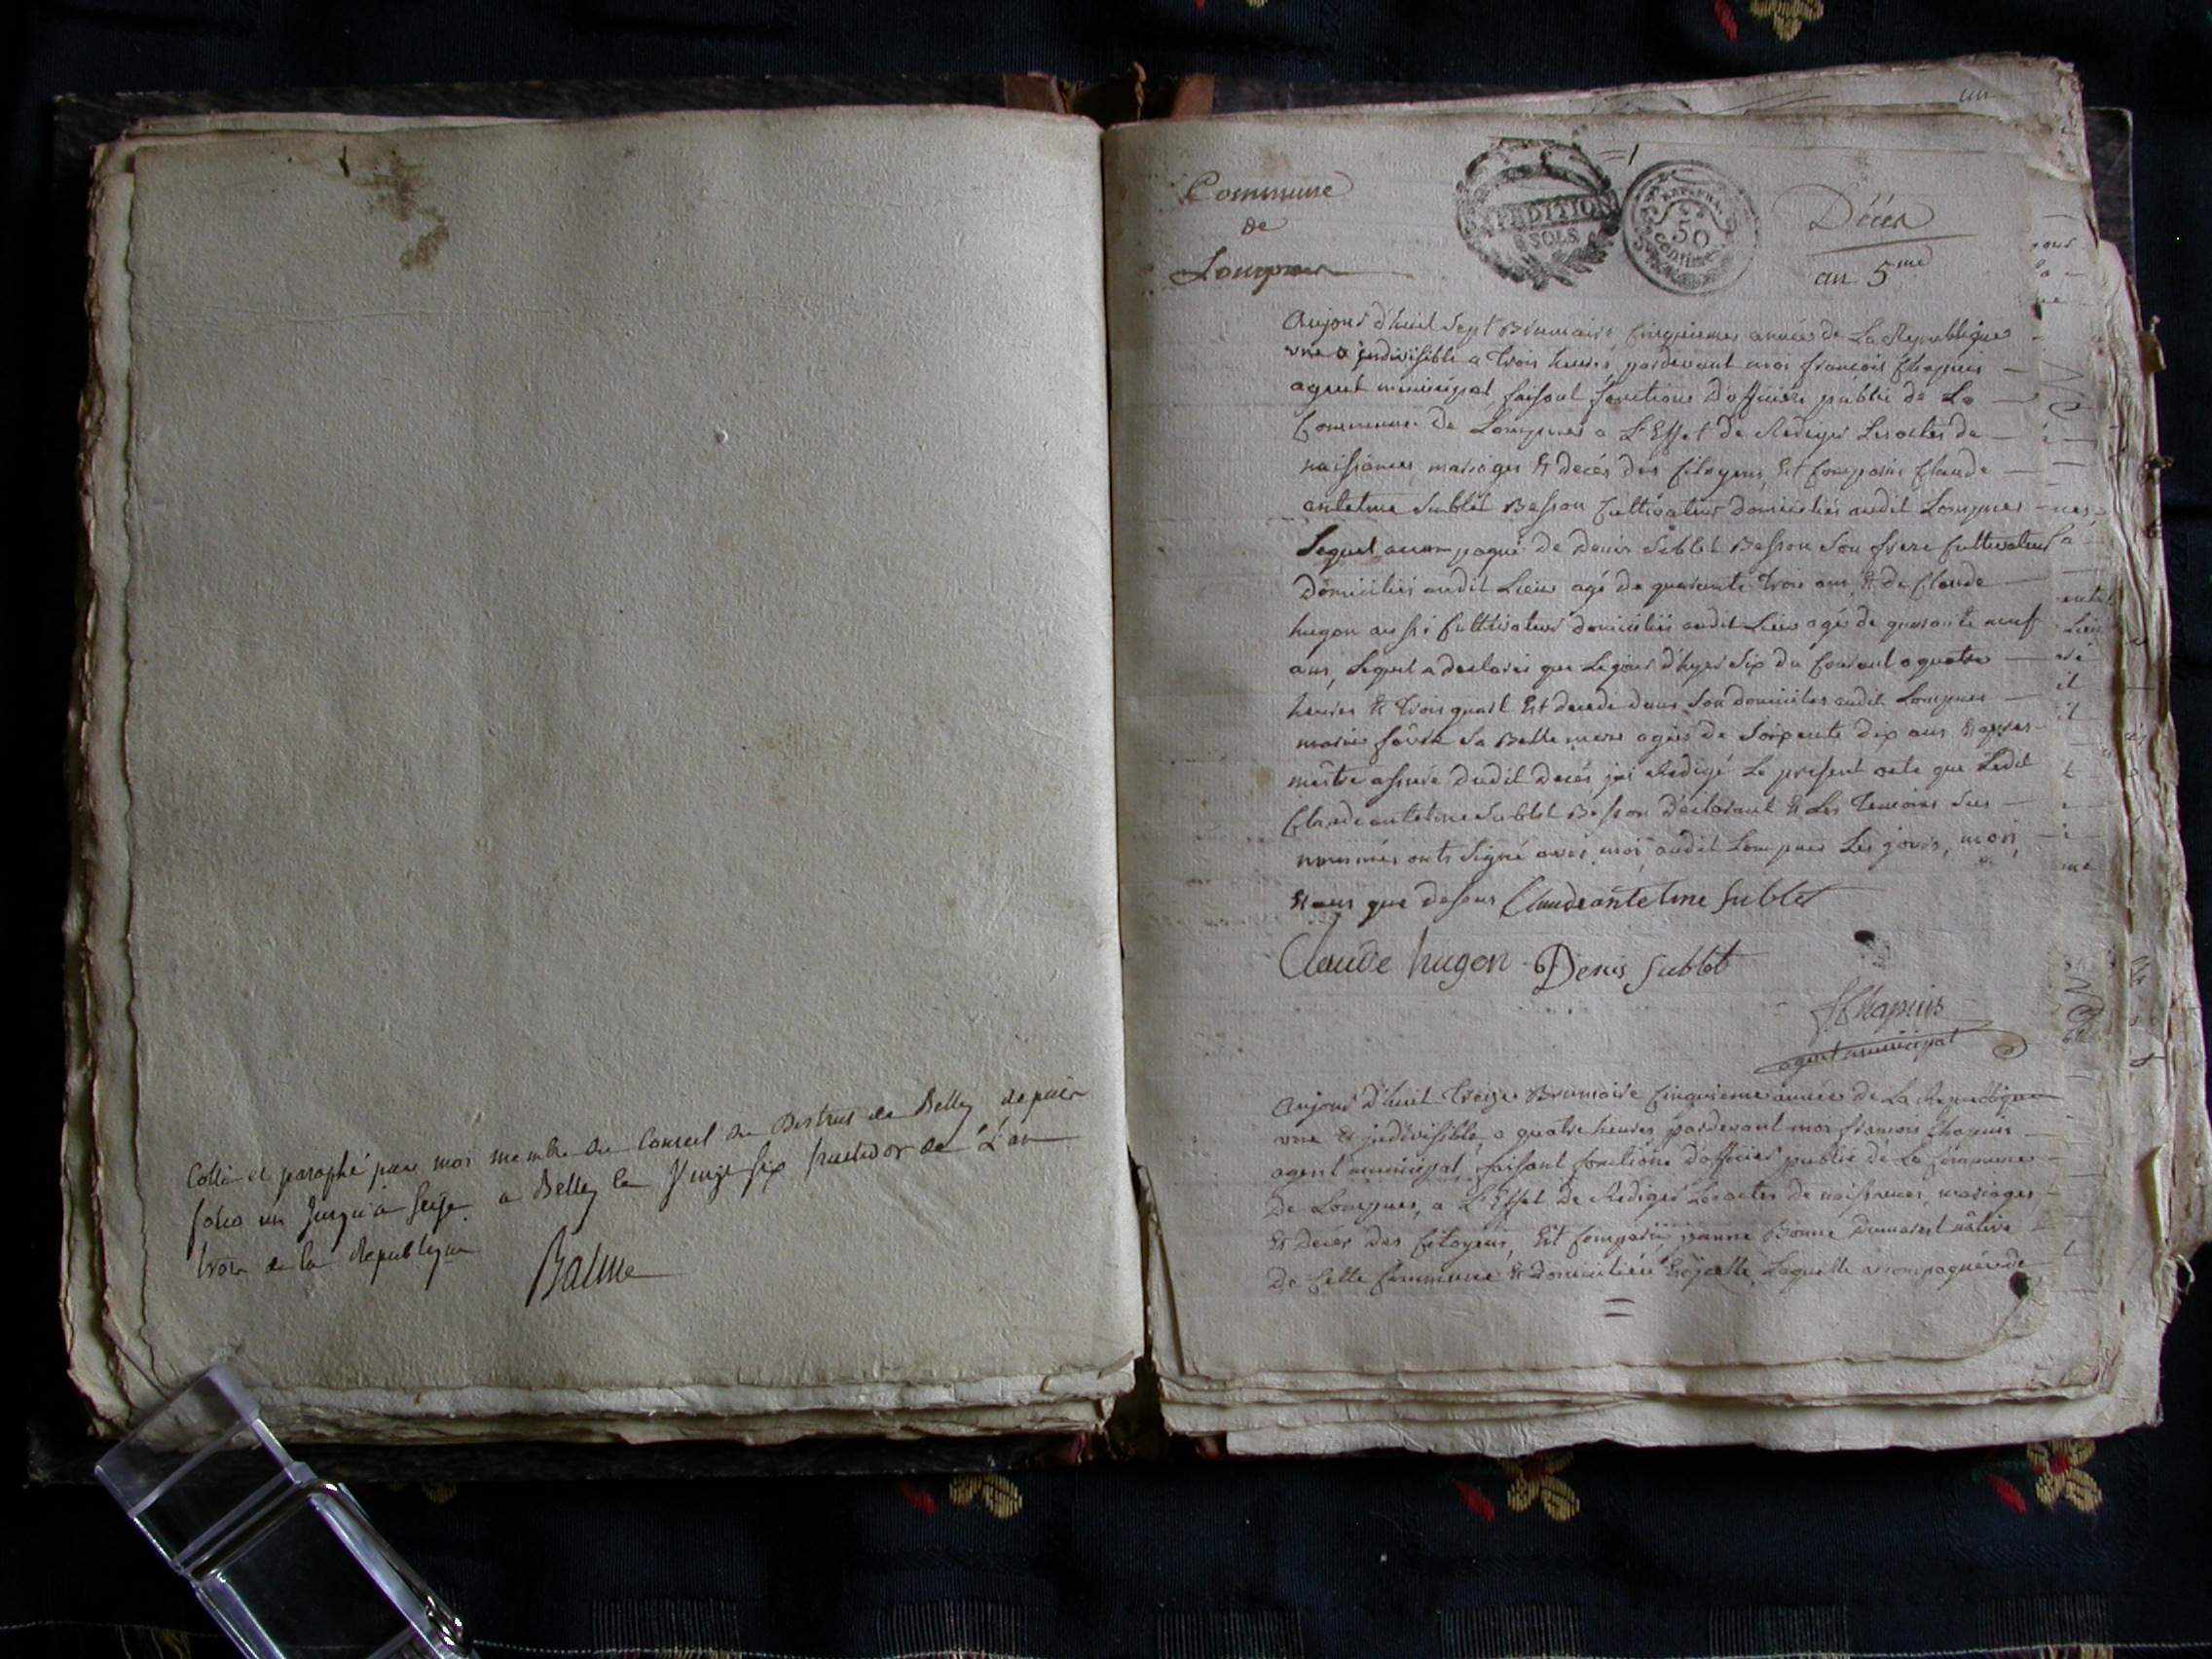 Cotté et paraphé par moi membre du Conseil du District de Belley depuis
folio un jusqu'à seize a Belley le vingt six fructidor de L'an
trois de la Republique
Balme
Commune
de
Lompnes
EXPEDITION
SOLS
REP. FRA.
50
centimes
Décés
an 5me
Aujourd'huit sept Brumaire cinquieme année de La Republique
une & jndivisible a trois heures pardevant moi francois Chapuis
agent municipal faisant fonctions d'officier public de La
Commune de Lompnes a L'Effet de Rediger Les actes de
naissances, mariages & decés des Citoyens, Est Comparu Claude
antelme Sublet Besson Cultivateur domicilié audit Lompnes
Lequel accompagné de Denis Sublet Besson son frere Cultivateur
Domicilié audit Lieu agé de quarante trois ans & de Claude
hugon aussi Cultivateur domicilié audit Lieu agé de quarante neuf
ans, Lequel a declaré que Le jour d'hyer six du Courant a quatre
heures & trois quart Est decedé dans son domicile audit Lompnes
marie sa Belle mere agée de soixante dix ans & apres
m'être assuré dudit Decés jai Redigé Le present acte que Ledit
Claude antelme Sublet Besson déclarant & Les temoins sus
nommés onts signé avec moi audit Lompnes Les jours, mois,
& ans que dessus Claude antelme Sublet
Claude hugon Denis Sublet
f Chapuis
agent municipal
Aujourd'huit treize Brumaire Cinquieme année de La Republique
une & jndivisible, a quatre heures pardevant moi francois Chapuis
agent municipal, faisant fonctions d'officier public de La Commune
de Lompnes, a L'Effet de Rediger Les actes de naissances, mariages,
& decés des Citoyens, Est Comparu jeanne Bonne Dumarest native
de Cette Commune & domiciliée En jcelle, Laquelle accompagnée de